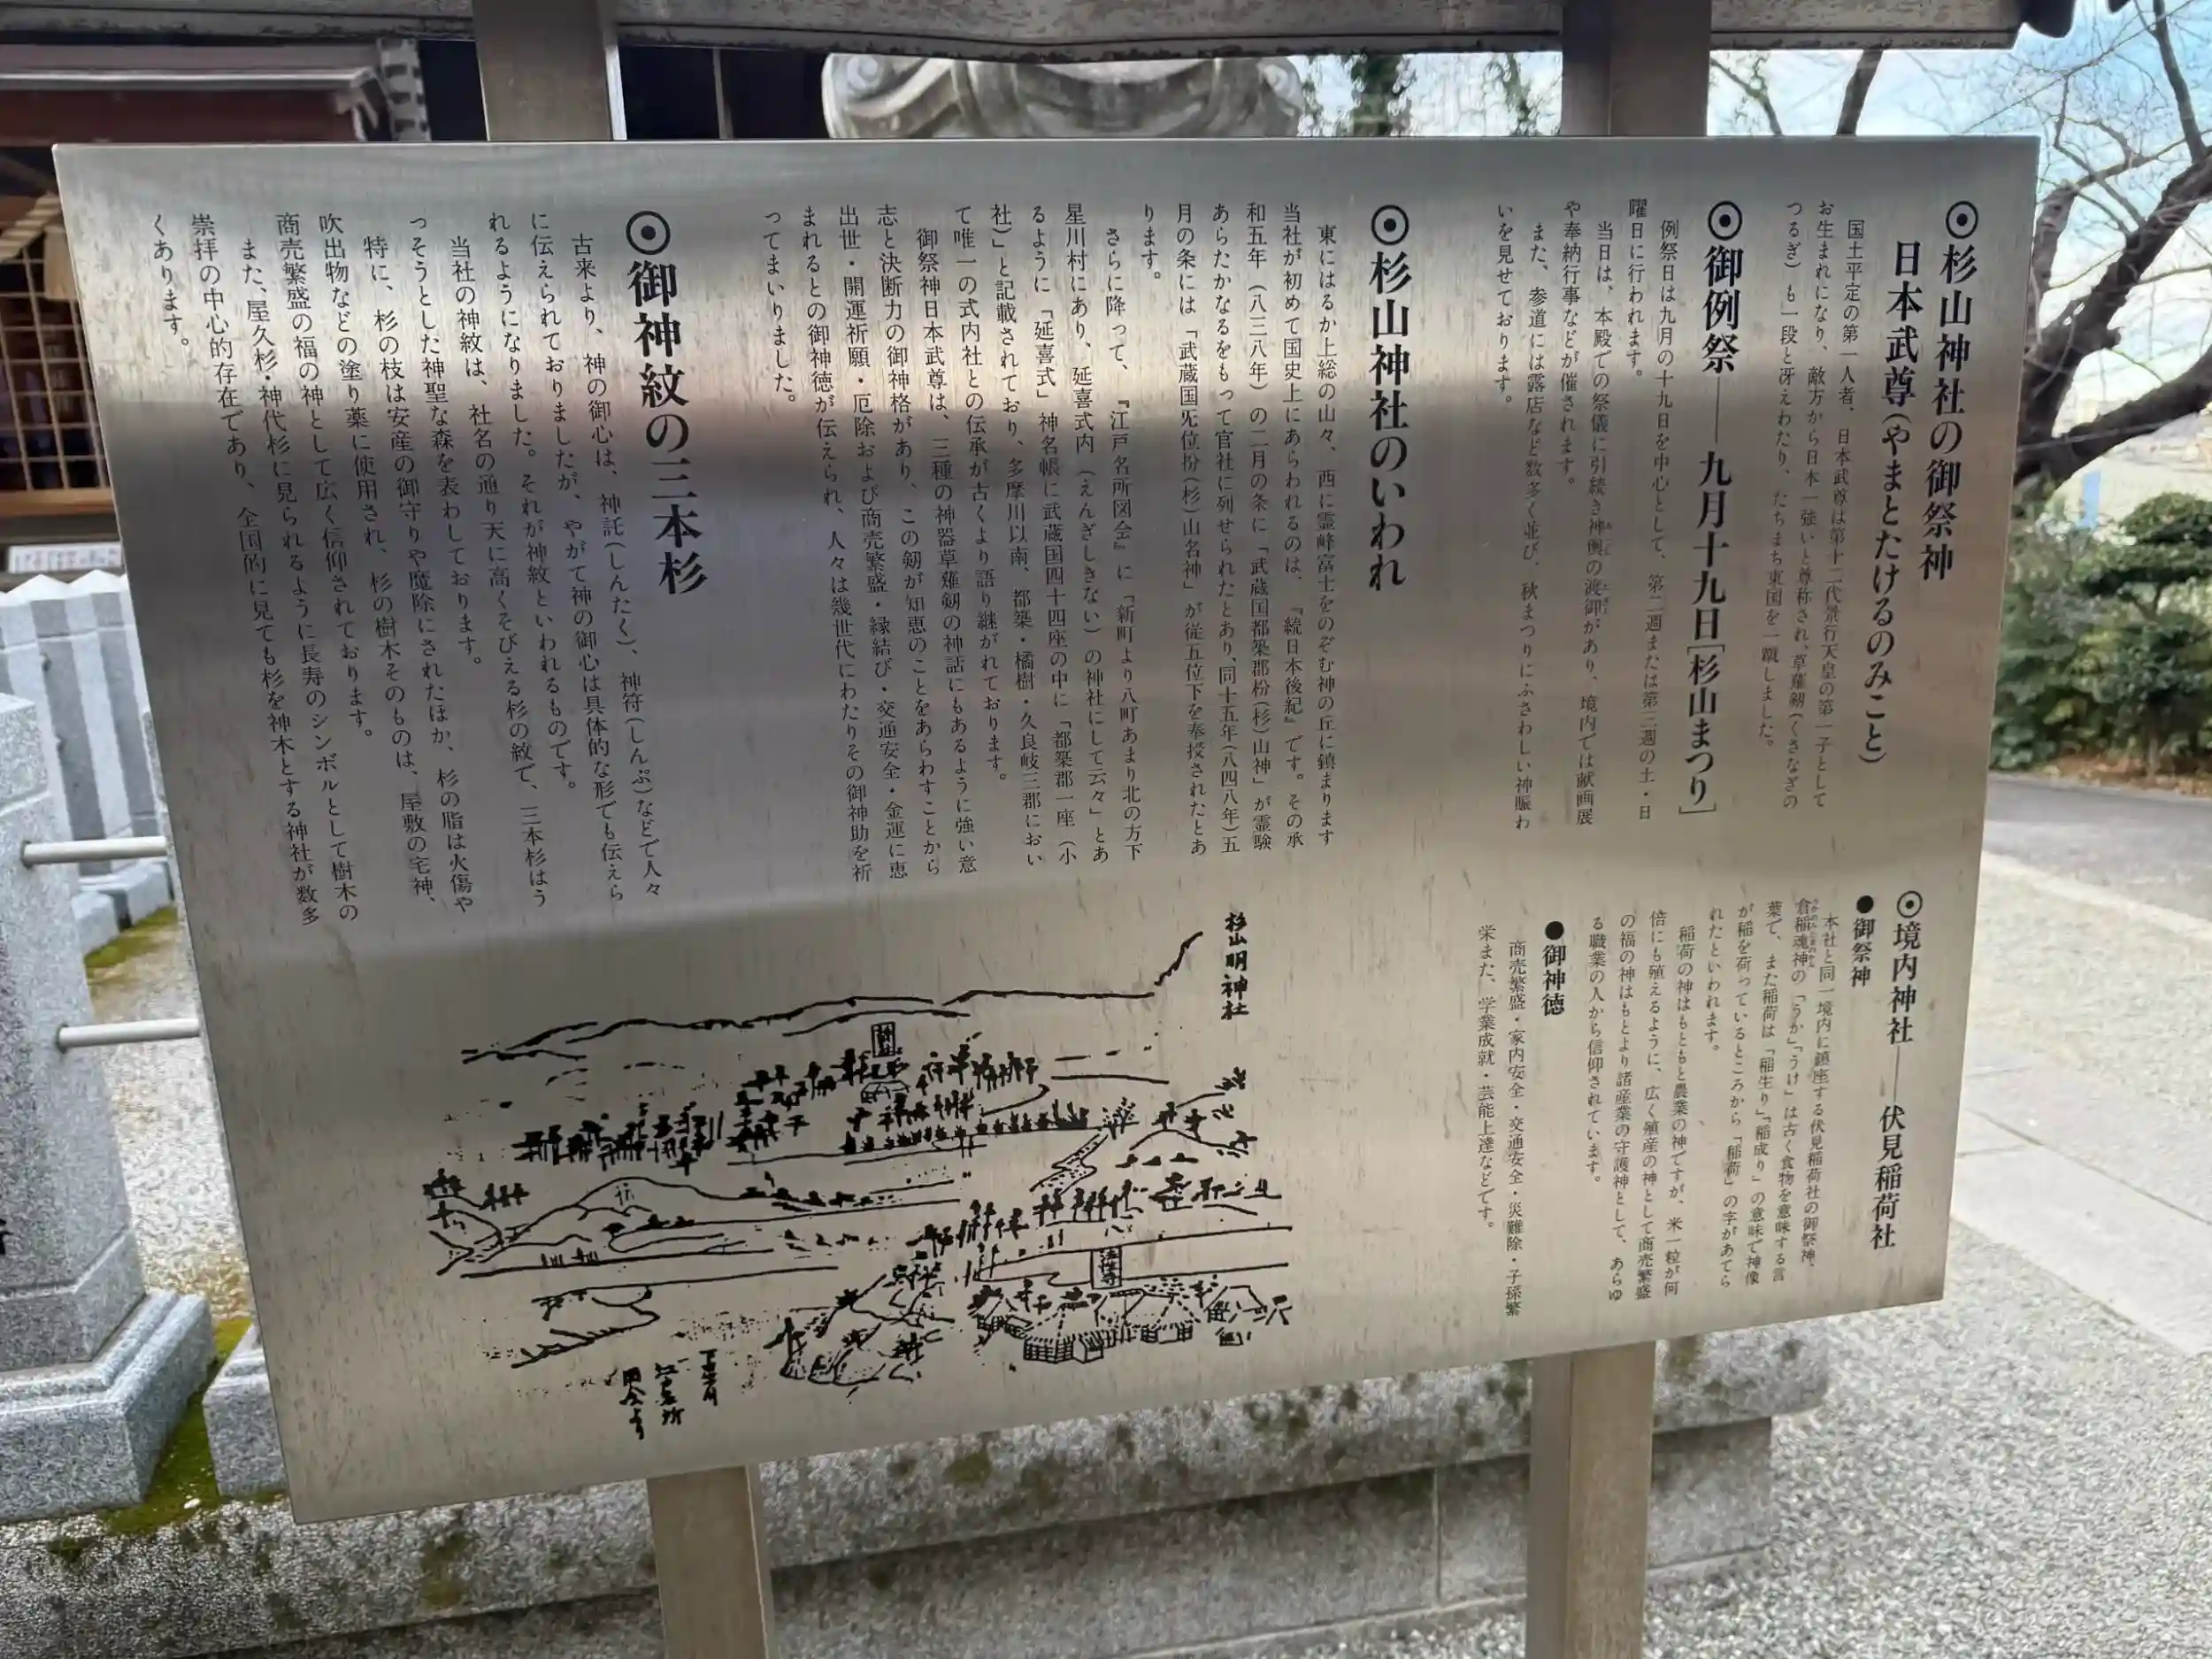 ◉杉山神社の御祭神
日本武尊(やまとたけるのみこと)
国土平定の第一人者、日本武尊は第十二代景行天皇の第一子として
お生まれになり、敵方から日本一強いと尊称され、草薙剱(くさなぎの
つるぎ)も一段と冴えわたり、たちまち東国を一蹴しました。
◉御例祭——九月十九日[杉山まつり]
例祭日は九月の十九日を中心として、第二週または第三週の土・日
曜日に行われます。
当日は、本殿での祭儀に引続き神輿の渡御があり、境内では献画展
や奉納行事などが催されます。
また、参道には露店など数多く並び、秋まつりにふさわしい神賑わ
いを見せております。
◉杉山神社のいわれ
東にはるか上総の山々、西に霊峰富士をのぞむ神の丘に鎮まります
当社が初めて国史上にあらわれるのは、『続日本後紀』です。その承
和五年(八三八年)の二月の条に「武蔵国都築郡枌(杉)山神」が霊験
あらたかなるをもって官社に列せられたとあり、同十五年(八四八年)五
月の条には「武蔵国旡位枌(杉)山名神」が従五位下を奉授されたとあ
ります。
さらに降って、『江戸名所図会』に「新町より八町あまり北の方下
星川村にあり、延喜式内(えんぎしきない)の神社にして云々」とあ
るように「延喜式」神名帳に武蔵国四十四座の中に「都築郡一座(小
社)」と記載されており、多摩川以南、都築・橘樹・久良岐三郡におい
て唯一の式内社との伝承が古くより語り継がれております。
御祭神日本武尊は、三種の神器草薙剱の神話にもあるように強い意
志と決断力の御神格があり、この剱が知恵のことをあらわすことから
出世・開運祈願・厄除および商売繁盛・縁結び・交通安全・金運に恵
まれるとの御神徳が伝えられ、人々は幾世代にわたりその御神助を祈
ってまいりました。
◉御神紋の三本杉
古来より、神の御心は、神託(しんたく)、神符(しんぷ)などで人々
に伝えられておりましたが、やがて神の御心は具体的な形でも伝えら
れるようになりました。それが神紋といわれるものです。
当社の神紋は、社名の通り天に高くそびえる杉の紋で、三本杉はう
っそうとした神聖な森を表わしております。
特に、杉の枝は安産の御守りや魔除にされたほか、杉の脂は火傷や
吹出物などの塗り薬に使用され、杉の樹木そのものは、屋敷の宅神、
商売繁盛の福の神として広く信仰されております。
また、屋久杉・神代杉に見られるように長寿のシンボルとして樹木の
崇拝の中心的存在であり、全国的に見ても杉を神木とする神社が数多
くあります。
◉境内神社——伏見稲荷社
●御祭神
本社と同一境内に鎮座する伏見稲荷社の御祭神、
倉稲魂神の「うか」「うけ」は古く食物を意味する言
葉で、また稲荷は「稲生り」「稲成り」の意味で神像
が稲を荷っているところから「稲荷」の字があてら
れたといわれます。
稲荷の神はもともと農業の神ですが、米一粒が何
倍にも殖えるように、広く殖産の神として商売繁盛
の福の神はもとより諸産業の守護神として、あらゆ
る職業の人から信仰されています。
●御神徳
商売繁盛・家内安全・交通安全・災難除・子孫繁
栄また、学業成就・芸能上達などです。
杉山明神社
法性寺
下星川
江戸名所
図会より